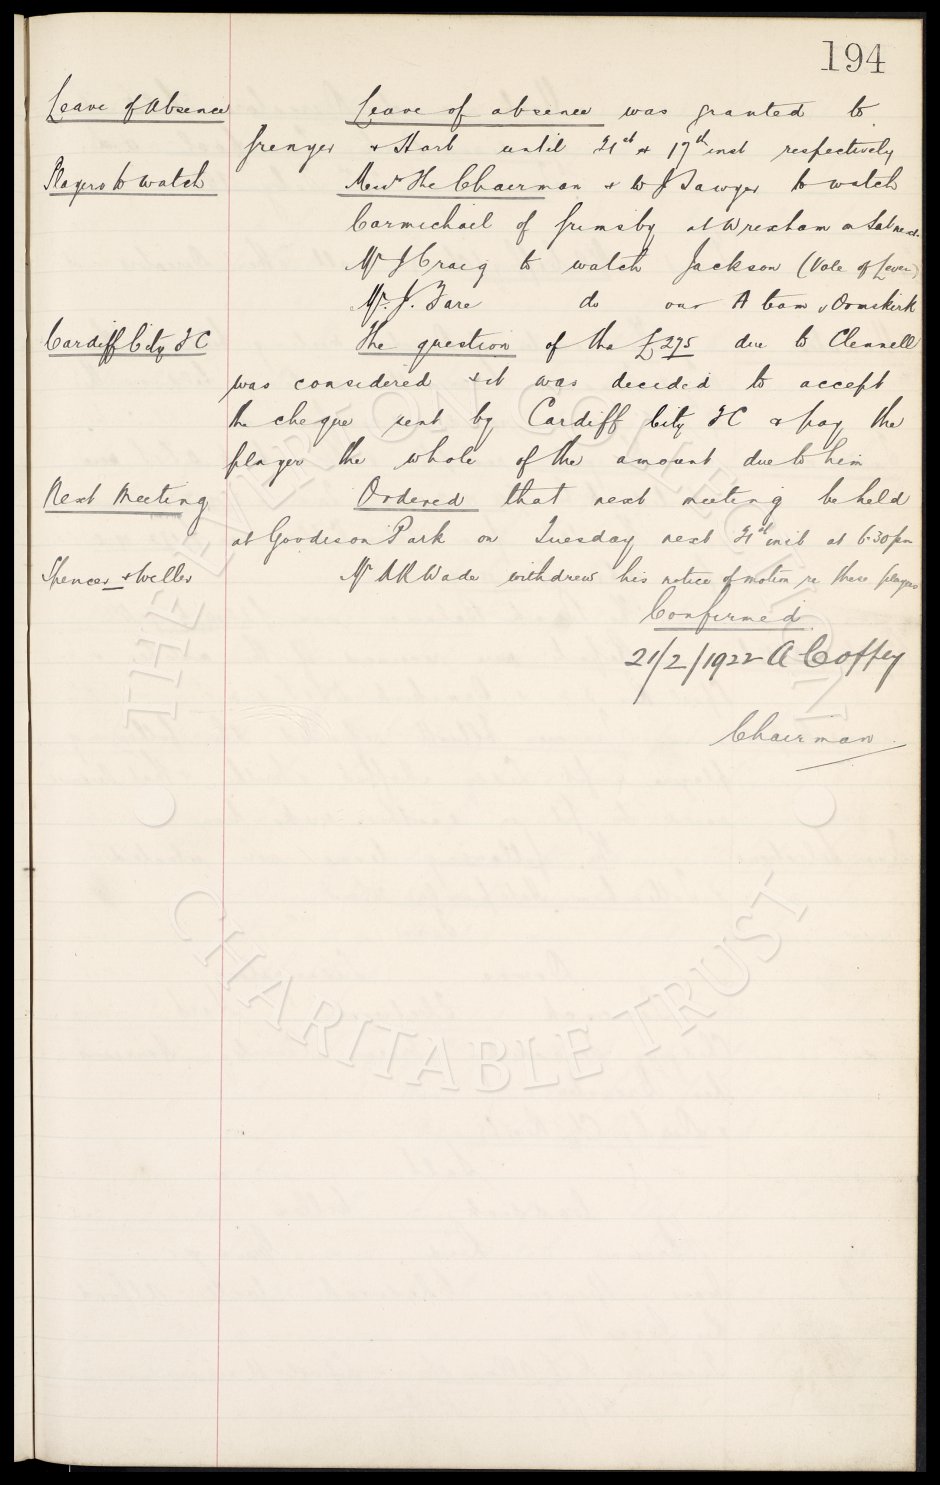 194
Leave of Absence Leave of absence was granted to
Grenyer & Hart until 21st & 17th inst respectively
Players to watch Messrs The Chairman & W J Sawyer to watch
Carmichael of Grimsby at Wrexham on Sat next.
Mr J Craig to watch Jackson (Vale of Leven)
Mr. J. Fare do our A team v Ormskirk
Cardiff City FC The question of the £275 due to Clennell
was considered & it was decided to accept
the cheque sent by Cardiff City FC & pay the
player the whole of the amount due to him
Next Meeting Ordered that next meeting be held
at Goodison Park on Tuesday next 21st inst at 6.30pm
Spencer & Weller Mr Wade withdrew his notice of motion re these players
Confirmed
21/2/1922 A Coffey
Chairman
THE EVERTON COLLECTION
CHARITABLE TRUST